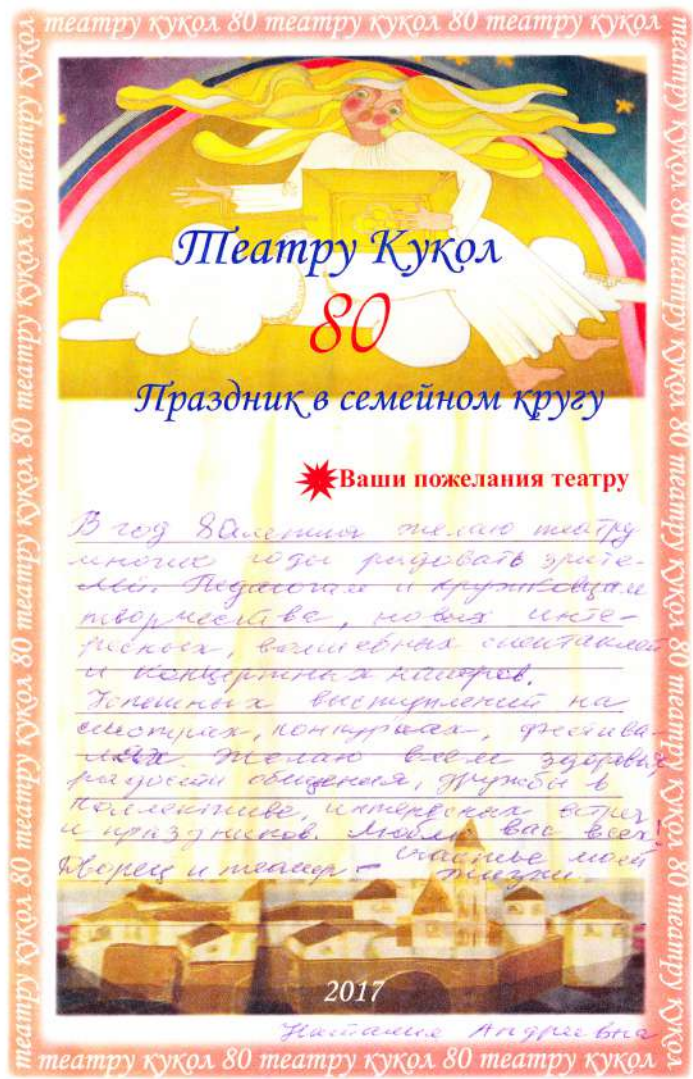 театру кукол 80 театру кукол 80 театру кукол 80 театру кукол
Театру Кукол
80
Праздник в семейном кругу
Ваши пожелания театру
В год 80летия желаю театру
многие годы радовать зрите-
лей. Педагогам и кружковцам
творчества, новых инте-
ресных, волшебных спектаклей
и концертных номеров.
Успешных выступлений на
смотрах, конкурсах, фестива-
лях. Желаю всем здоровья,
радости общения, дружбы в
коллективе, интересных встреч
и праздников. Люблю вас всех!
Дворец и театр – счастье моей
жизни.
2017
Наталия Андреевна
театру кукол 80 театру кукол 80 театру кукол 80 театру кукол